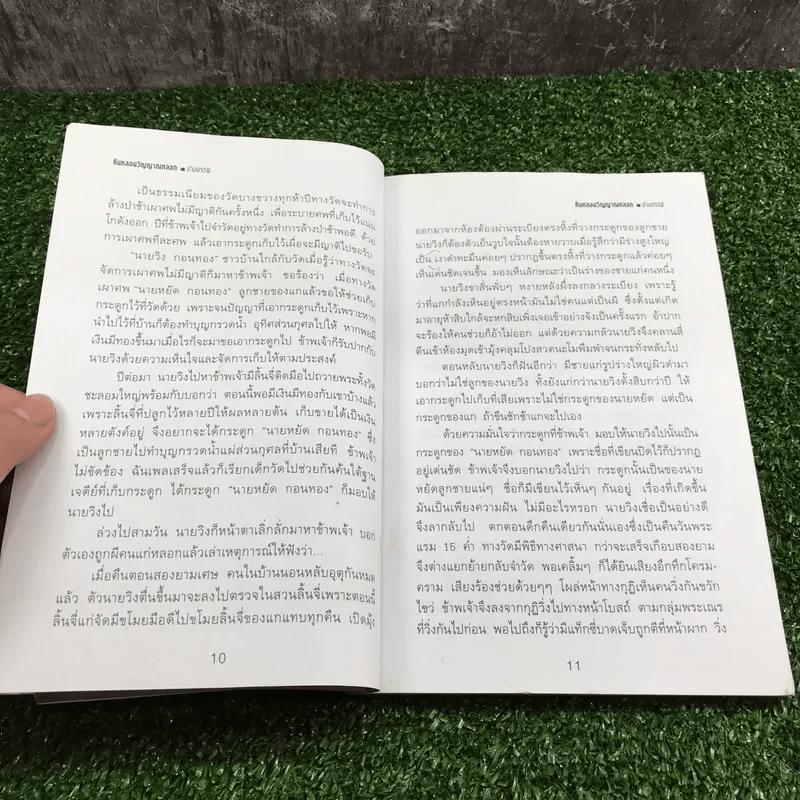 คืนหลอนวิญญาณหลอก ● ปานบรรพ์
เป็นธรรมเนียมของวัดบางขวางทุกห้าปีทางวัดจะทำการ
ล้างป่าช้าเผาศพไม่มีญาติกันครั้งหนึ่ง เพื่อระบายศพที่เก็บไว้แน่น
โกดังออก ปีที่ข้าพเจ้าไปจำวัดอยู่ทางวัดทำการล้างป่าช้าพอดี ด้วย
การเผาศพทีละศพ แล้วเอากระดูกเก็บไว้เผื่อจะมีญาติไปขอรับ
"นายวิง กอนทอง" ชาวบ้านใกล้กับวัดเมื่อรู้ว่าทางวัดจะ
จัดการเผาศพไม่มีญาติก็มาหาข้าพเจ้า ขอร้องว่า เมื่อทางวัด
เผาศพ "นายหยัด กอนทอง" ลูกชายของแกแล้วขอให้ช่วยเก็บ
กระดูกไว้ที่วัดด้วย เพราะจนปัญญาที่เอากระดูกเก็บไว้เพราะหาก
นำไปไว้ที่บ้านก็ต้องทำบุญกรวดน้ำ อุทิศส่วนกุศลไปให้ หากพอมี
เงินมีทองขึ้นมาเมื่อไรก็จะมาขอเอากระดูกไป ข้าพเจ้าก็รับปากกับ
นายวิงด้วยความเห็นใจและจัดการเก็บให้ตามประสงค์
ปีต่อมา นายวิงไปหาข้าพเจ้ามีลิ้นจี่ติดมือไปถวายพระทั้งวัด
ชะลอมใหญ่พร้อมกับบอกว่า ตอนนี้พอมีเงินมีทองกับเขาบ้างแล้ว
เพราะลิ้นจี่ที่ปลูกไว้หลายปีให้ผลหลายต้น เก็บขายได้เป็นเงิน
หลายตังค์อยู่ จึงอยากจะได้กระดูก "นายหยัด กอนทอง" ซึ่ง
เป็นลูกชายไปทำบุญกรวดน้ำแผ่ส่วนกุศลที่บ้านเสียที ข้าพเจ้า
ไม่ขัดข้อง ฉันเพลเสร็จแล้วก็เรียกเด็กวัดไปช่วยกันค้นใต้ฐาน
เจดีย์ที่เก็บกระดูก ได้กระดูก "นายหยัด กอนทอง" ก็มอบให้
นายวิงไป
ล่วงไปสามวัน นายวิงก็หน้าตาเลิ่กลั่กมาหาข้าพเจ้า บอก
ตัวเองถูกผีคนแก่หลอกแล้วเล่าเหตุการณ์ให้ฟังว่า...
เมื่อคืนตอนสองยามเศษ คนในบ้านนอนหลับอุตุกันหมด
แล้ว ตัวนายวิงตื่นขึ้นมาจะลงไปตรวจในสวนลิ้นจี่เพราะตอนนี้
ลิ้นจี่แก่จัดมีขโมยมือดีไปขโมยลิ้นจี่ของแกแทบทุกคืน เปิดมุ้ง
10
คืนหลอนวิญญาณหลอก ● ปานบรรพ์
ออกมาจากห้องต้องผ่านระเบียงตรงหิ้งที่วางกระดูกของลูกชาย
นายวิงก็ต้องตัวเย็นวูบใจนั้นต้องหายวาบเมื่อรู้สึกว่ามีร่างสูงใหญ่
เป็น เงาดำทะมึนค่อยๆ ปรากฏขึ้นตรงหิ้งที่วางกระดูกแล้วค่อยๆ
เห็นเด่นชัดเจนขึ้น มองเห็นลักษณะว่าเป็นร่างของชายแก่คนหนึ่ง
นายวิงขาสั่นพั่บๆ หงายหลังผึ่งลงกลางระเบียง เพราะรู้
ว่าที่แกกำลังเห็นอยู่ตรงหน้ามันไม่ใช่คนแต่เป็นผี ซึ่งตั้งแต่เกิด
มาอายุห้าสิบใกล้จะหกสิบเพิ่งเจอเข้าอย่างจังเป็นครั้งแรก อ้าปาก
จะร้องให้คนช่วยก็อ้าไม่ออก แต่ด้วยความกลัวนายวิงจึงคลานสี่
ตีนเข้าห้องมุดเข้ามุ้งคลุมโปงสวดนะโมพึมพำจนกระทั่งหลับไป
ตอนหลับนายวิงก็ฝันอีกว่า มีชายแก่รูปร่างใหญ่ผิวดำมา
บอกว่าไม่ใช่ลูกของนายวิง ทั้งยังแก่กว่านายวิงตั้งสิบกว่าปี ให้
เอากระดูกไปเก็บที่เสียเพราะไม่ใช่กระดูกของนายหยัด แต่เป็น
กระดูกของแก ถ้าขืนชักช้าแกจะไปเอง
ด้วยความมั่นใจว่ากระดูกที่ข้าพเจ้า มอบให้นายวิงไปนั้นเป็น
กระดูกของ "นายหยัด กอนทอง" เพราะชื่อที่เขียนปิดไว้ก็ปรากฏ
อยู่เด่นชัด ข้าพเจ้าจึงบอกนายวิงไปว่า กระดูกนั้นเป็นของนาย
หยัดลูกชายแน่ๆ ชื่อก็มีเขียนไว้เห็นๆ กันอยู่ เรื่องที่เกิดขึ้น
มันเป็นเพียงความฝัน ไม่มีอะไรหรอก นายวิงเชื่อเป็นอย่างดี
จึงลากลับไป ตกตอนดึกคืนเดียวกันนั้นเองซึ่งเป็นคืนวันพระ
แรม 15 ค่ำ ทางวัดมีพิธีทางศาสนา กว่าจะเสร็จเกือบสองยาม
จึงต่างแยกย้ายกลับจำวัด พอเคลิ้มๆ ก็ได้ยินเสียงอึกทึกโครม-
คราม เสียงร้องช่วยด้วยๆๆ โผล่หน้าทางกุฏิเห็นคนวิ่งกันขวัก
ไขว่ ข้าพเจ้าจึงลงจากกุฏิวิ่งไปทางหน้าโบสถ์ ตามกลุ่มพระเณร
ที่วิ่งกันไปก่อน พอไปถึงก็รู้ว่ามีแท็กซี่บาดเจ็บถูกตีที่หน้าผาก วิ่ง
11